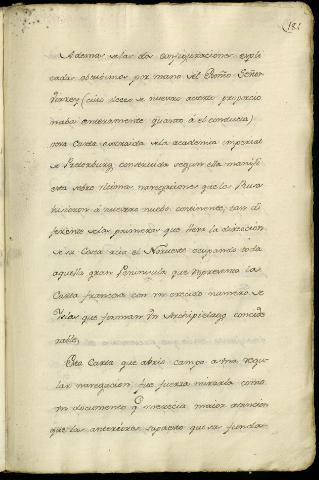 Ademas de las dos configuraciones expli
cadas obtubimos por mano del Exmo Señor
(cuio deseo de nuestro acierto proporcio
naba enteramente quanto á el conducia)
otra Carta extraida de la academia imperial
de Petersburg, construida segun ella manifi
esta sobre ultimas navegaciones que los Rusos
hicieron á nuestro nuebo continente, tan di
ferente de las primeras que tiene la direccion
de su Costa acia el Norueste ocupando toda
aquella gran Peninsula que representa las
Carta francesa con un crecido numero de
Yslas que forman un Archipielago conside
rable.
Esta Carta que abrio campo a una regu
lar navegacion fue fuerza mirarla como
un documento q.e merecia maior atencion
que las anteriores supuesto que se funda=